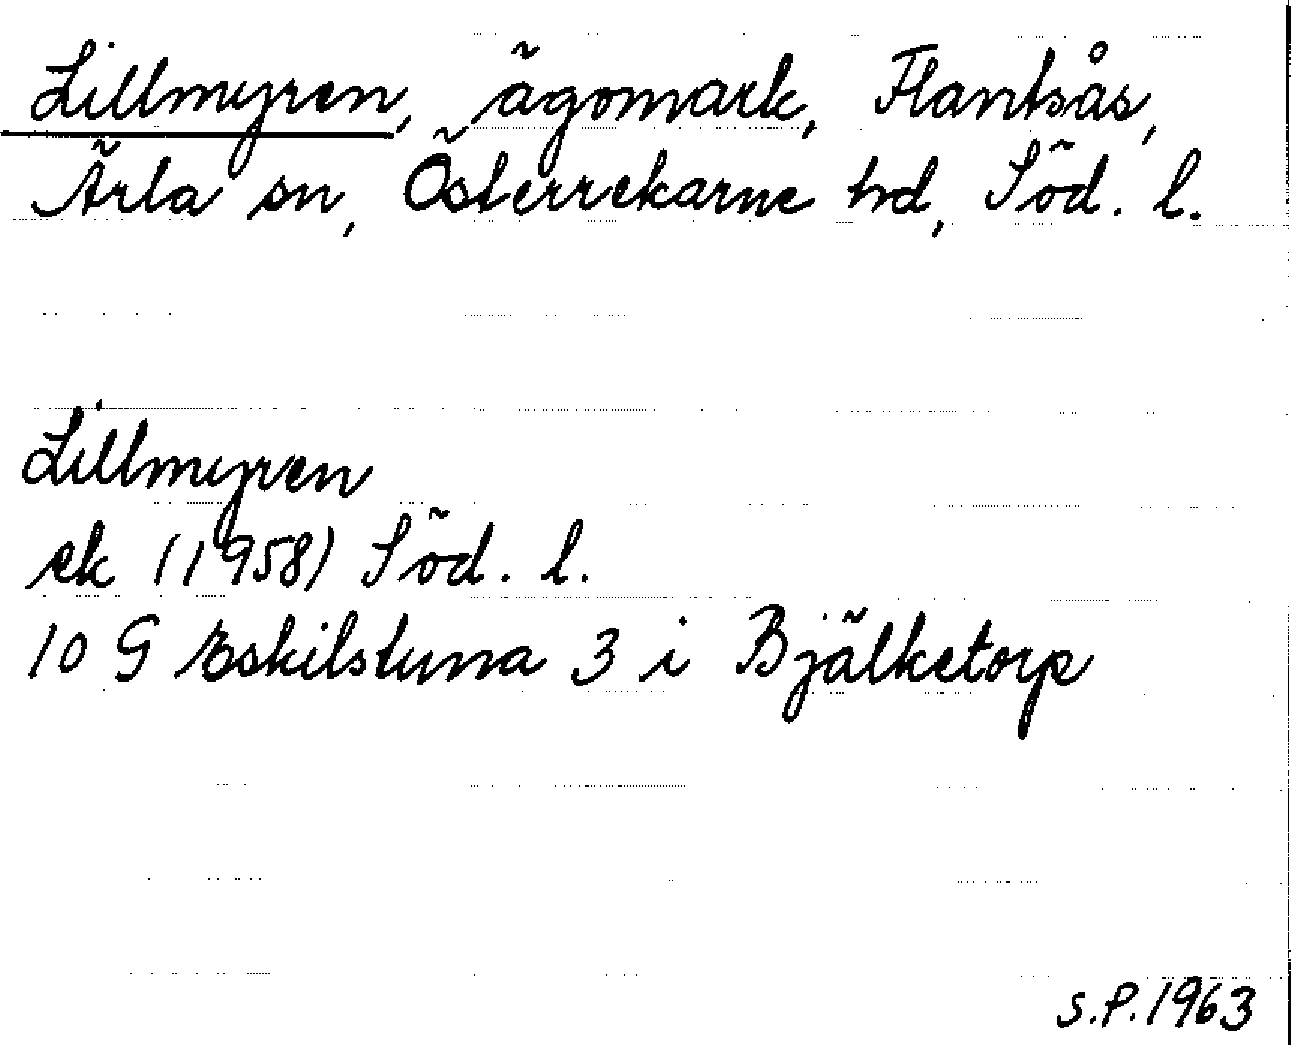 Lillmyren, ägomark, Flantsås,
Ärla sn, Österrekarne hd, Söd. l.
Lillmyren
ek (1958) Söd. l.
10 G Eskilstuna 3 i Bjälketorp
S.P. 1963